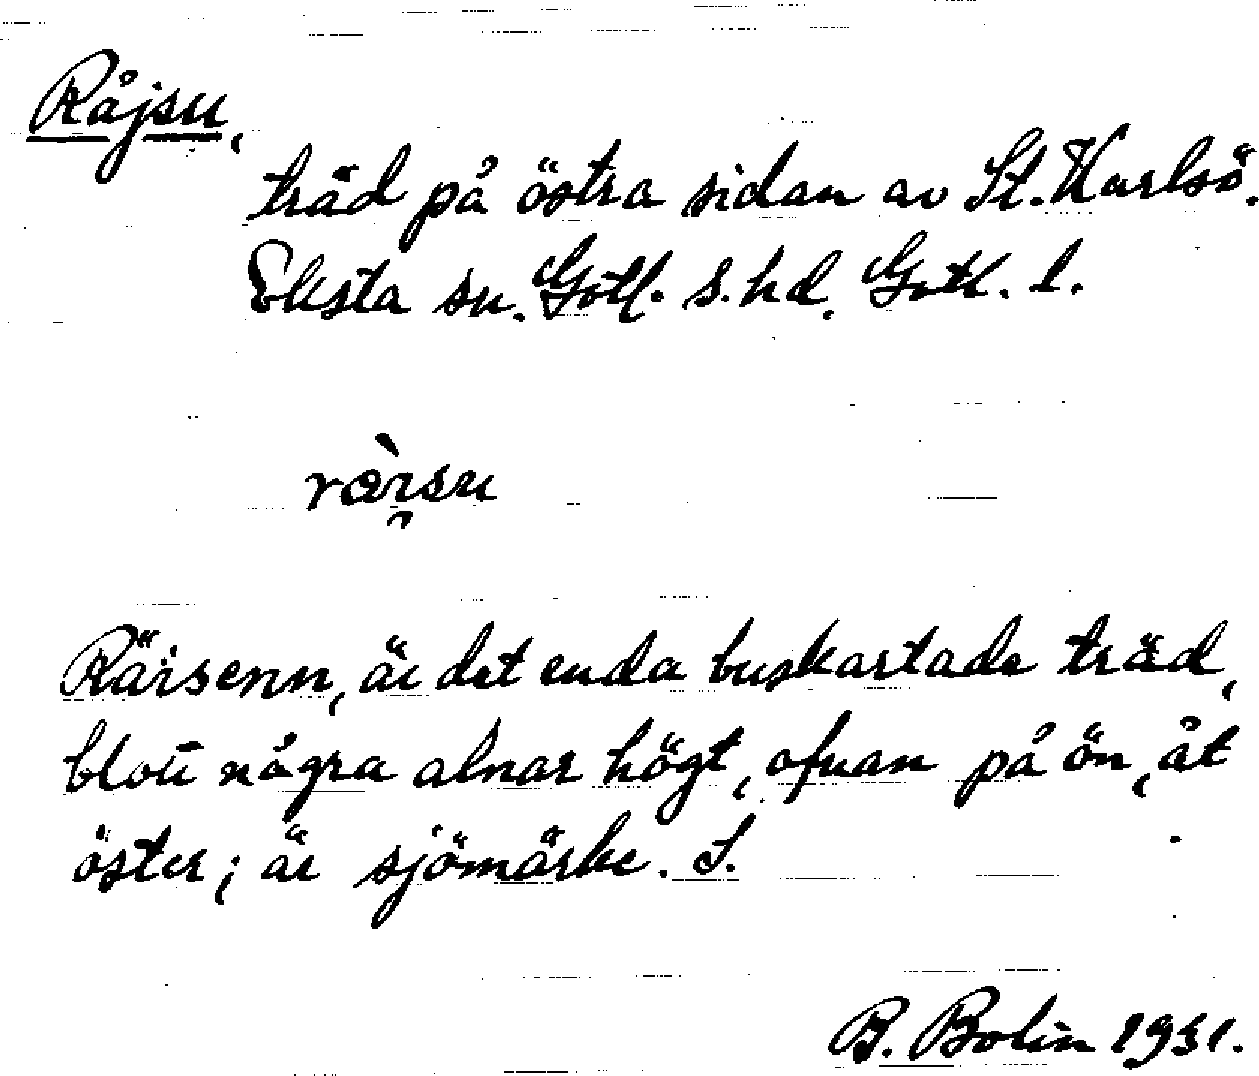 Råjsu,
träd på östra sidan av St. Karlsö.
Eksta sn. Gotl. s. hd. Gotl. l.
Räisenn, är det enda buskartade träd,
blott några alnar högt, ofvan på ön, åt
öster; är sjömärke. S.
B. Bolin 1931.